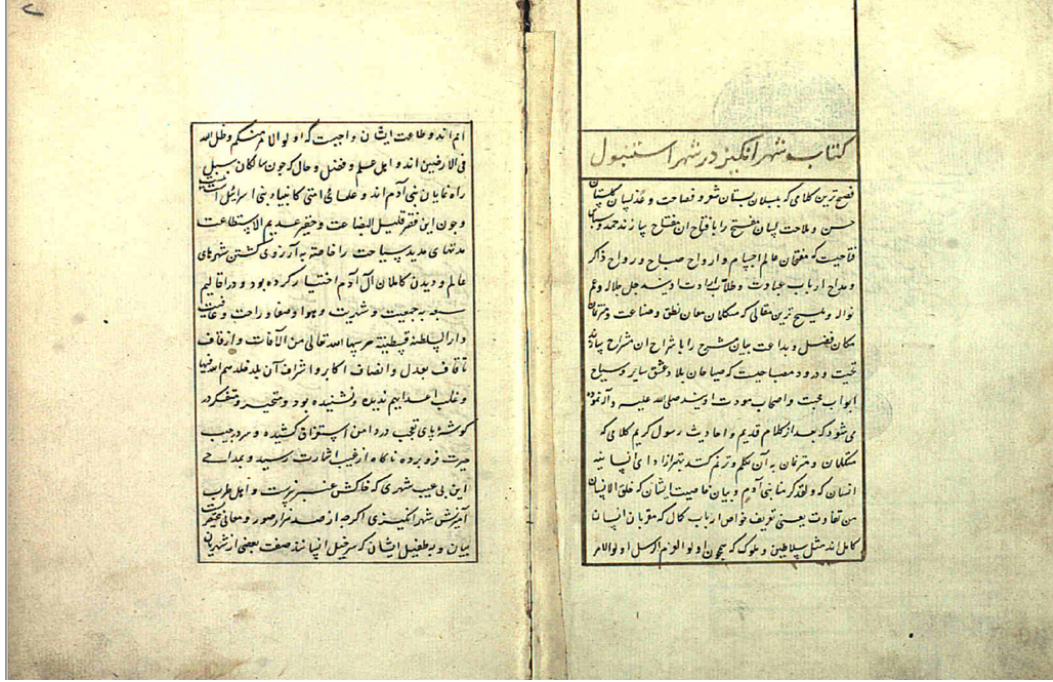 کتاب شهر انگیز در شهر استنبول
فصیح ترین کلامی که بلبلان بستان شعر و فصاحت و عندلیبان گلستان
حسن و ملاحت لسان مفصح را بافتاح ان مفتاح سازند حمد و سپاس
فتاحیست که مفتحان عالم اجسام و ارواح صباح و رواح ذاکر
و مداح ارباب عبادت و طلاب ارادت اویند جل جلاله و عم
نواله و ملیح ترین مقالی که متکلمان معان نطق و صناعت و مترنمان
مکان فضل و بداعت بیان مشرح را باشراح ان مشراح
تحیت و درود مصباحیست که صیاحان بلاد عشق سایر و سیاح
ابواب محبت و اصحاب مودت اویند صلی الله علیه و آله نموده
می شود که بعد از کلام قدیم و احادیث رسول کریم کلامی که
متکلمان و مترنمان به آن تکلم و ترنم کنند بهتر از ادای
انسان که و لقد کرمنا بنی آدم و بیان خاصیت ایشان که خلق الانسان
من تفاوت یعنی تعریف خواص ارباب کمال که مقربان انسان
کامل اند مثل سلاطین و ملوک که همچون اولو العزم الرسل اولو الامر
ایم اند و طاعت ایشان واجبست که اولو الامر منکم و ظل الله
فی الارضین اند و اهل علم و فضل و حال که چون سالکان سبل
راه نمایان بنی آدم اند و علماء امتی کانبیاء بنی اسرائیل
و چون این فقیر قلیل البضاعت و حقیر عدیم الاستطاعت
مدتهای مدید سیاحت را خاصة به آرزوی گشتن شهرهای
عالم و دیدن کاملان آل آدم اختیار کرده بود و در اقالیم
سبعه به جمعیت و شهریت و هوا و صفا و راحت و
دار السلطنه قسطنطنیه حرسها الله تعالی من الآفات و از قاف
تا قاف بعدل و انصاف اکابر و اشراف آن بلده
و غلب اعدایهم ندیده و نشنیده بود و متحیر و متفکر در
گوشه تعجب در دامن استغراق کشیده و سر در جیب
حیرت فرو برده ناکاه از غیب اشارت رسید و بمداحی
این بی عیب شهری که خاکش عنبر و اهل طرب
شهر انگیزی اگرچه از صد هزار صور و معانی
بیان و به طفیل ایشان که سرخیل انسانند صفت بعضی از شهریان